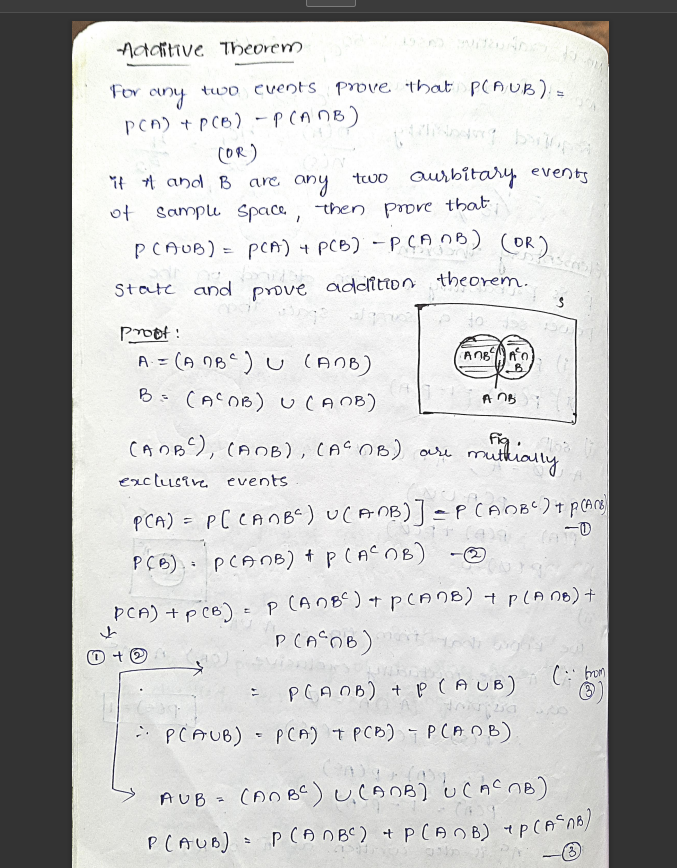 Additive Theorem
For any two events prove that P(A∪B) =
P(A) + P(B) - P(A∩B)
(OR)
if A and B are any two aurbitary events
of sample space, then prove that
P(A∪B) = P(A) + P(B) - P(A∩B) (OR)
State and prove addition theorem.
S
Proof:
A = (A∩Bᶜ) ∪ (A∩B)
B = (Aᶜ∩B) ∪ (A∩B)
A∩Bᶜ
Aᶜ∩
B
A∩B
Fig.
(A∩Bᶜ), (A∩B), (Aᶜ∩B) are mutually
exclusive events.
P(A) = P[(A∩Bᶜ) ∪ (A∩B)] = P(A∩Bᶜ) + P(A∩B)
-①
P(B) = P(A∩B) + P(Aᶜ∩B) -②
P(A) + P(B) = P(A∩Bᶜ) + P(A∩B) + P(A∩B) +
P(Aᶜ∩B)
↓
① + ②
= P(A∩B) + P(A∪B) (∵ from
③)
∴ P(A∪B) = P(A) + P(B) - P(A∩B)
A∪B = (A∩Bᶜ) ∪ (A∩B] ∪ (Aᶜ∩B)
P(A∪B) = P(A∩Bᶜ) + P(A∩B) + P(Aᶜ∩B)
-③